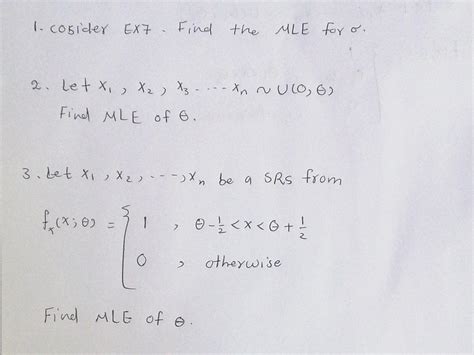 1. cosider EX7. Find the MLE for σ.
2. Let x₁, x₂, x₃ ---- xₙ ~ U(0, θ)
Find MLE of θ.
3. Let x₁, x₂, ---, xₙ be a SRS from
fₓ(x; θ) = { 1 , θ-½ < x < θ + ½
0 , otherwise
Find MLE of θ.